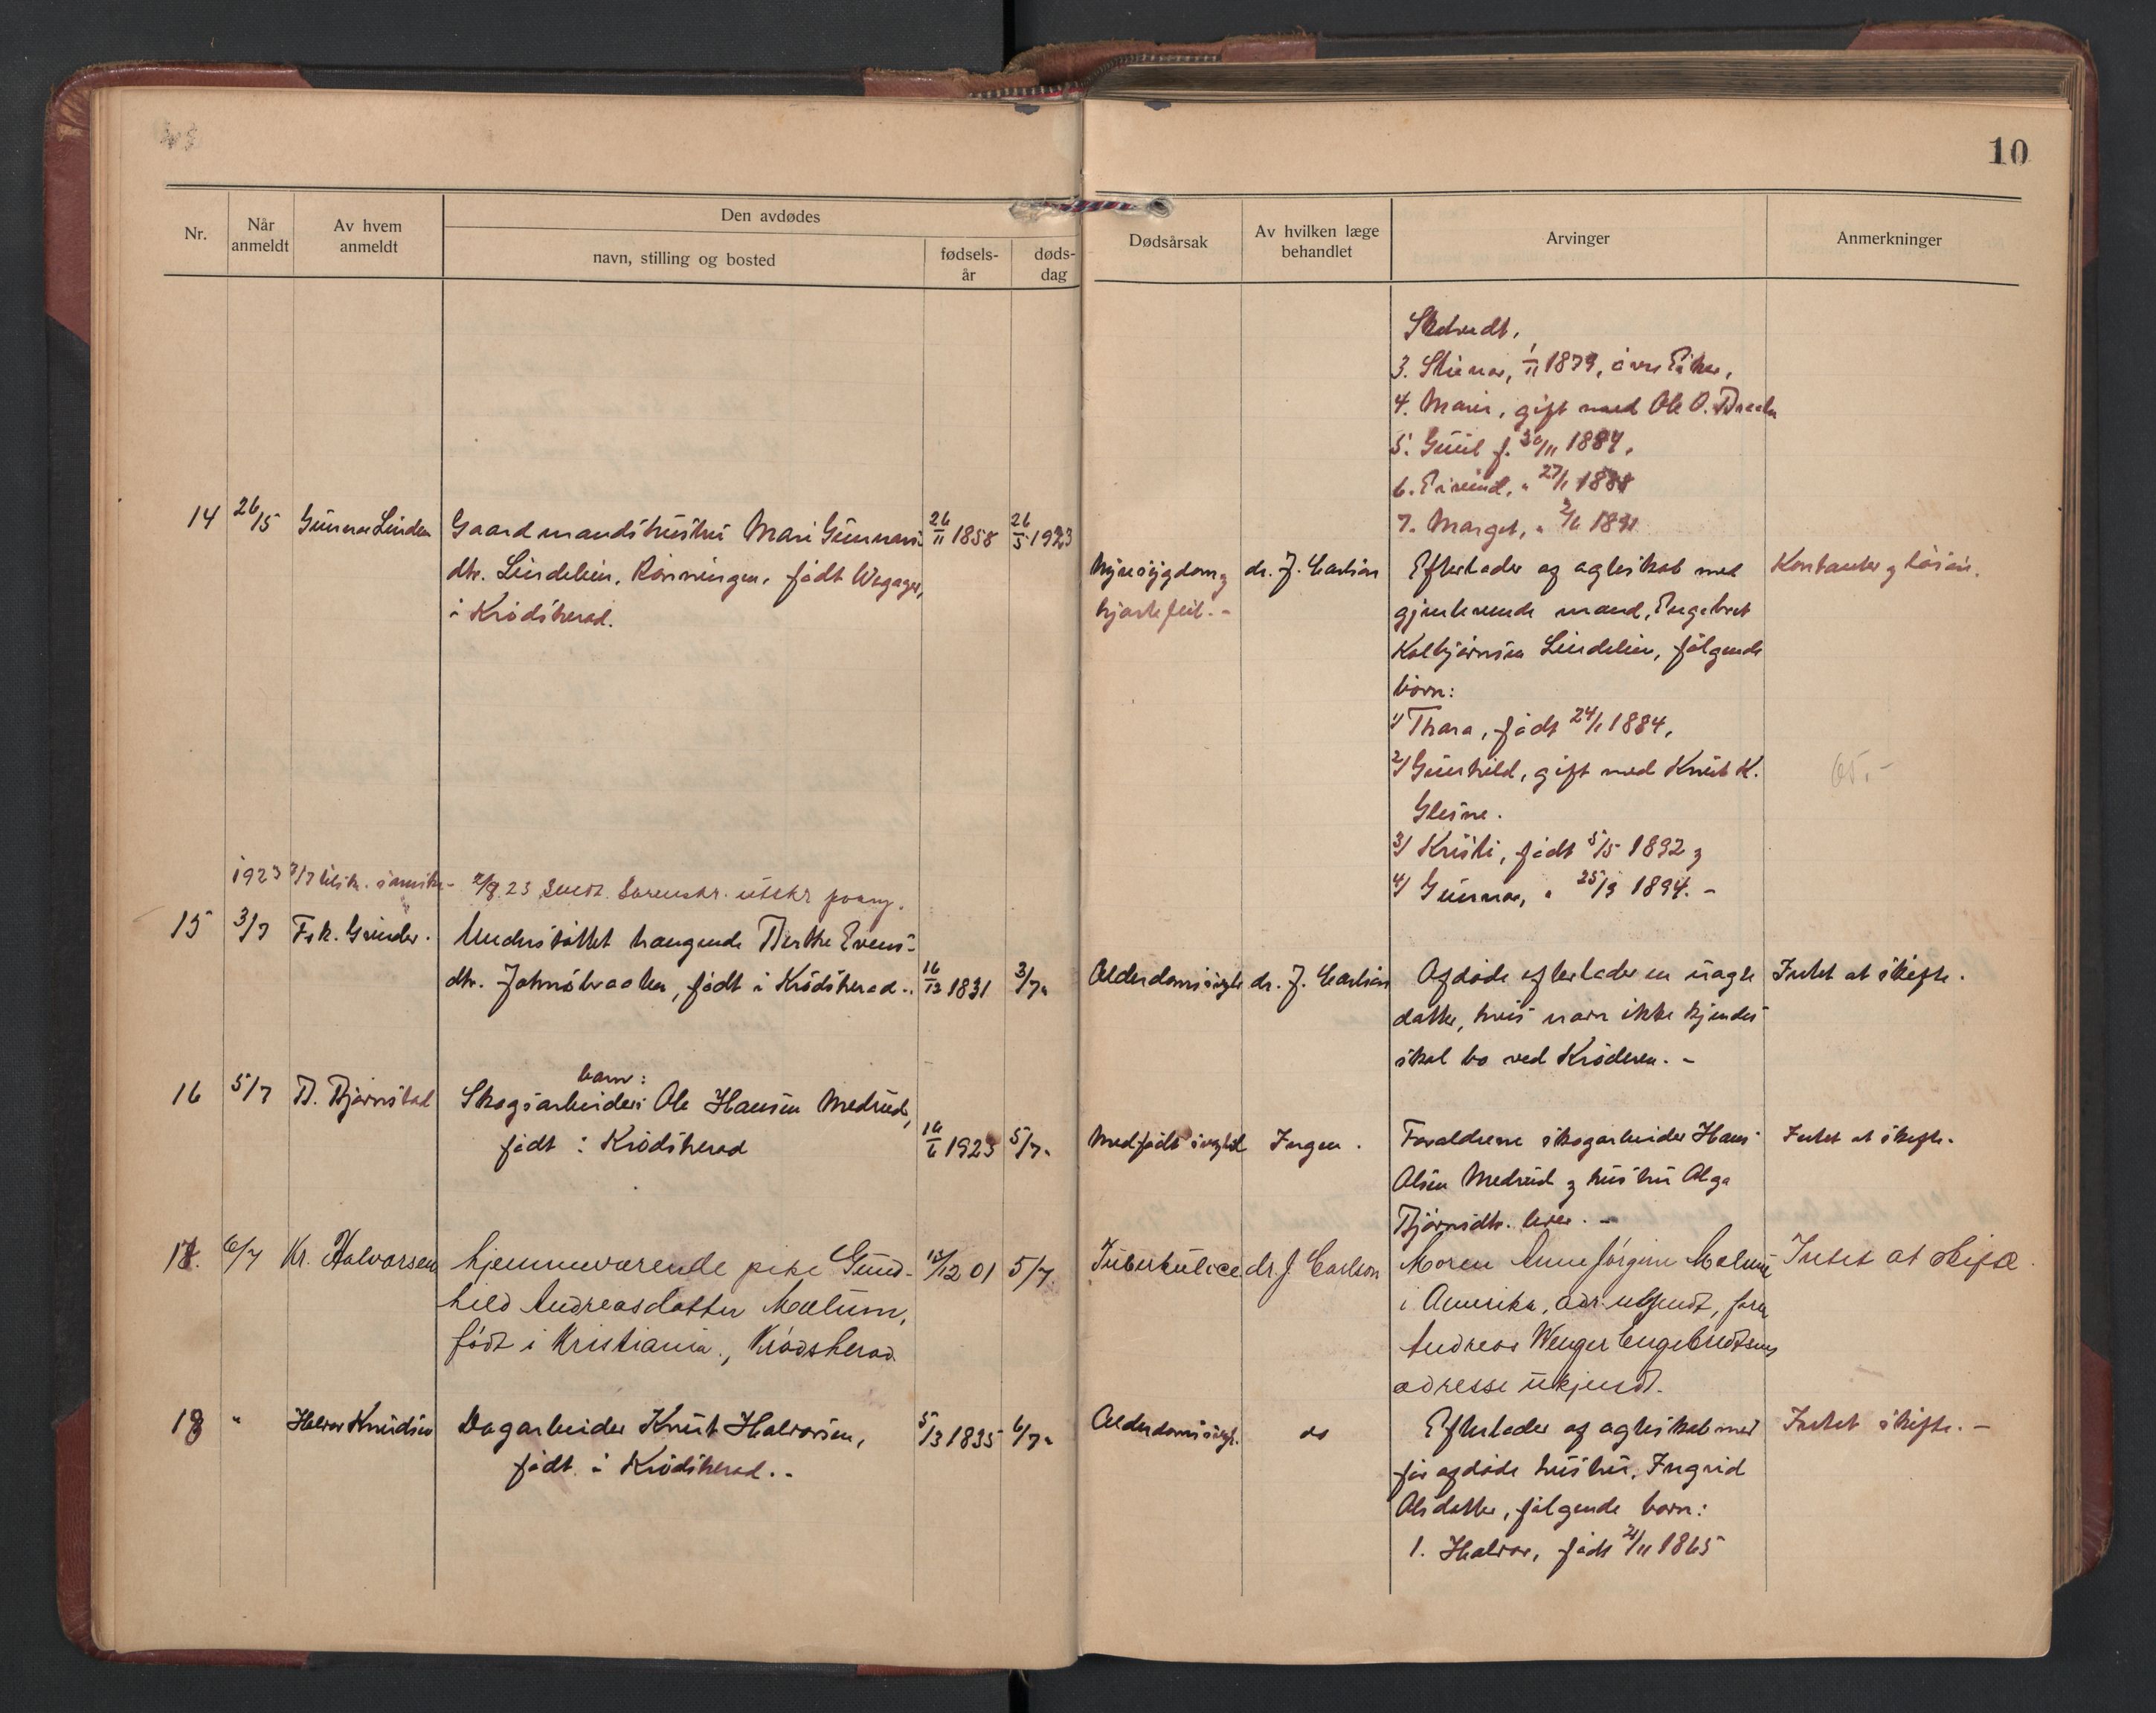 10
Nr.
Når anmeldt
Av hvem anmeldt
Den avdødes
navn, stilling og bosted
fødsels-år
døds-dag
Dødsårsak
Av hvilken læge behandlet
Arvinger
Anmerkninger
3. Steinar, 1/11 1879, øvre Eiker,
4. Marie, gift med Ole O.
5. Guul f. 30/11 1884,
6. Eivind, " 27/1 1888
7. Marget, " 2/6 1891
14 26/5 Gunnar Lindelien
Gaardmandshustru Mari Gunnars-
dtr. Lindelien, Rønningen, født
i Krødsherad.
26/11 1858
26/5 1923
Nyresygdom og
hjertefeil. -
dr. J. Carlson
Efterlader af egteskab med
gjenlevende mand, Engebret
Kolbjørnsen Lindelien, følgende
børn:
1/ Thora, født 24/1 1884,
2/ Gunhild, gift med Knut K.
Glesne.
3/ Kristi, født 5/5 1892 og
4/ Gunnar, " 25/3 1894. -
Kontanter og løsøre.
65.-
1923
2/8 23 sendt Sorenskr. utskr
15 3/7 Fsk. Grinder.
Understøttet trængende Berthe Evens-
dtr. Johnsbraaten, født i Krødsherad..
16/12 1831
3/7"
Alderdomssvagh
dr. J. Carlson
Afdøde efterlader en uægte
datter, hvis navn ikke kjendes
skal bo ved Krøderen. -
Intet at skifte.
16 5/7 B. Bjørnstad
barn:
Skogsarbeider: Ole Hansen Medrud,
født i Krødsherad
16/6 1923
5/7"
Medfødt svaghed
Ingen.
Forældrene skogarbeider Hans
Olsen Medrud og hustru Olga
Bjørnsdtr. lever. -
Intet at skifte.
17. 6/7 Kr. Halvorsen
Hjemmeværende pike Gund-
hild Andreasdatter Mælum,
født i Kristiania., Krødsherad.
12 01
5/7.
Tuberkulose
dr J. Carlson
Moren Anne Jørgine Mælum
i Amerika, adr. ukjendt, faren
Andreas Wenger Engebretsens
adresse ukjendt.
Intet at skifte.
18 " Halvor Knudsen
Dagarbeider Knut Halvorsen,
født i Krødsherad..
5/3 1835
6/7"
Alderdomssvagh.
do
Efterlader af egteskab med
før afdøde hustru, Ingrid
Olsdatter, følgende børn:
1. Halvor, født 21/11 1865
Intet skifte. -